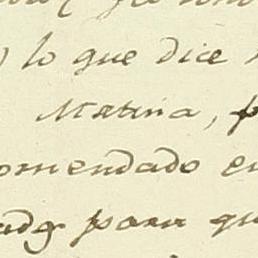 lo que dice
Matina,
omendado en
para qu